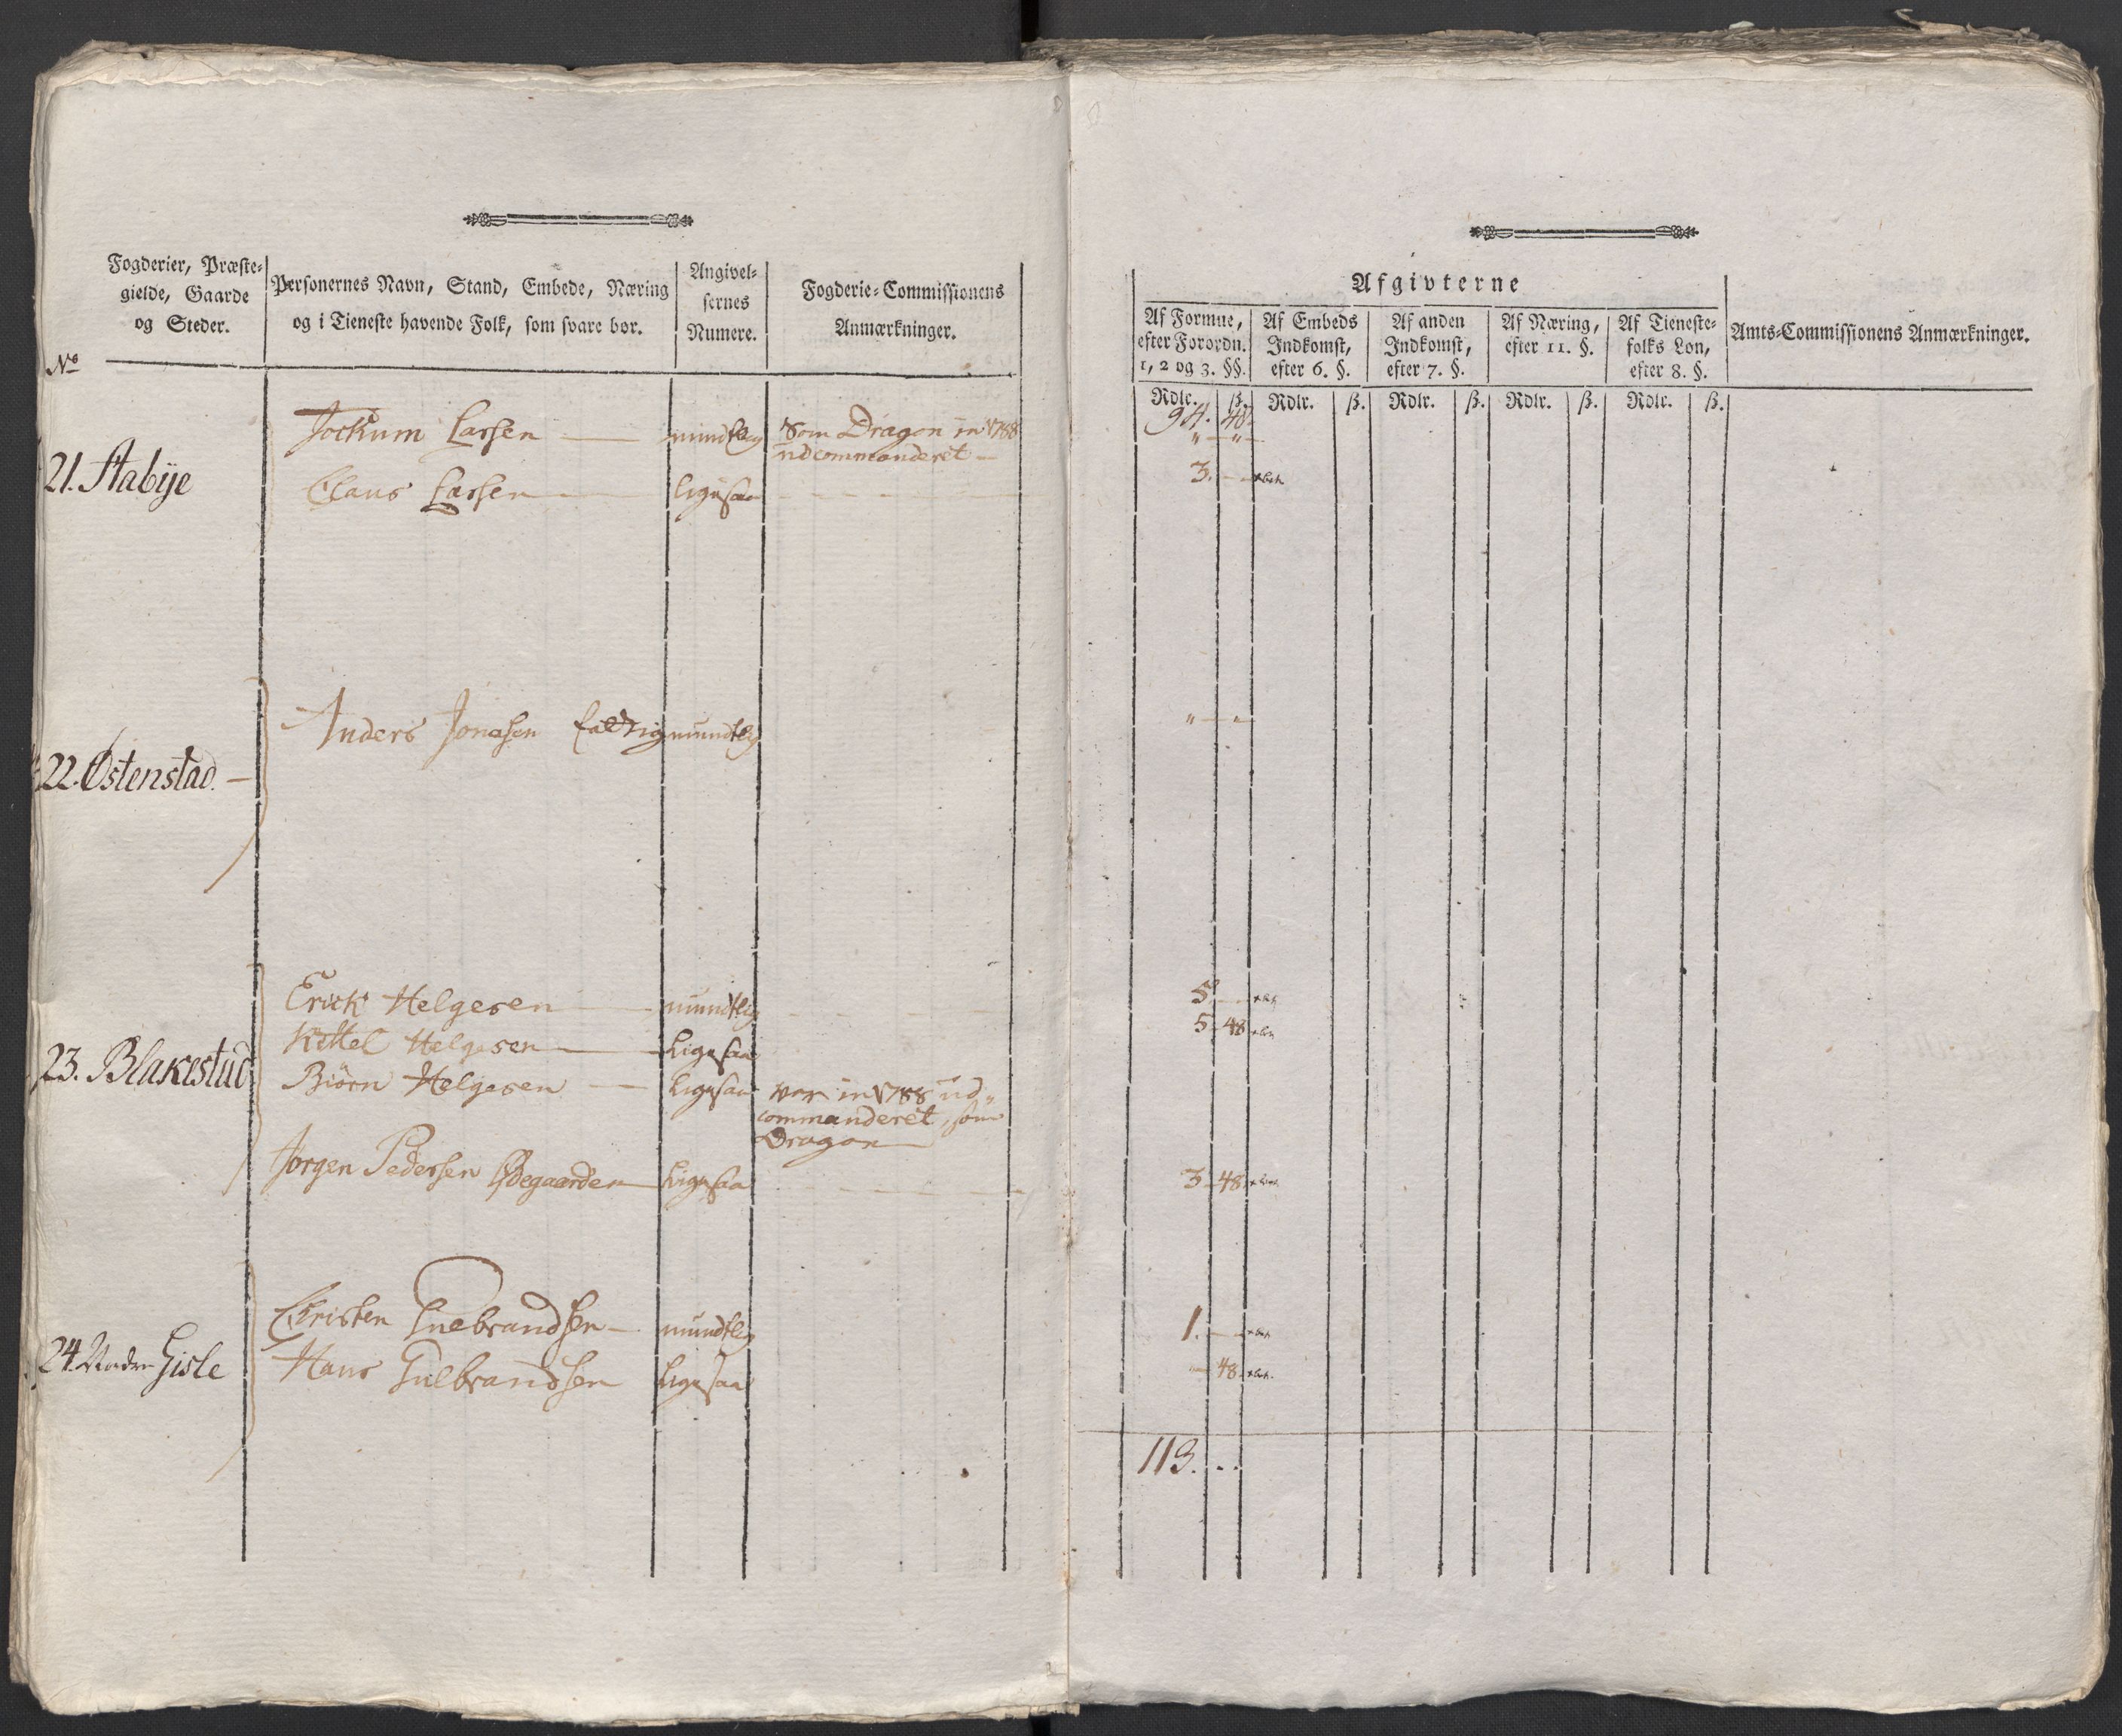 Fogderier, Præste-
gielde, Gaarde
og Steder.
Personernes Navn, Stand, Embede, Næring
og i Tieneste havende Folk, som svare bør.
Angivel-
sernes
Numere.
Fogderie-Commissionens
Anmærkninger.
No
21. Stabije
Jochum Larsen — mundtlig
Som Dragon in 1788
udcommanderet —
Claus Larsen — ligesaa
22. Østenstad —
Anders Jonasen fattig mundtlig
23. Blakestad
Erick Helgesen — mundtlig
Kittel Helgesen — Ligesaa
Biörn Helgesen — Ligesaa
var in 1788 ud-
commanderet, som
Dragon —
Jørgen Pedersen Ødegaarden — Ligesaa
24. Nadre Gisle
Christen Gulbrandsen — mundtlig
Hans Gulbrandsen Ligesaa
Afgivterne
Af Formue,
efter Forordn.
1, 2 og 3. §§.
Af Embeds
Indkomst,
efter 6. §.
Af anden
Indkomst,
efter 7. §.
Af Næring,
efter 11. §.
Af Tieneste-
folks Løn,
efter 8. §.
Amts-Commissionens Anmærkninger.
Rdlr. ß. Rdlr. ß. Rdlr. ß. Rdlr. ß. Rdlr. ß.
94. 48.
" — " —
3. —
" — "
5. —
5. 48
3. 48.
1. —
" 48.
113. . .